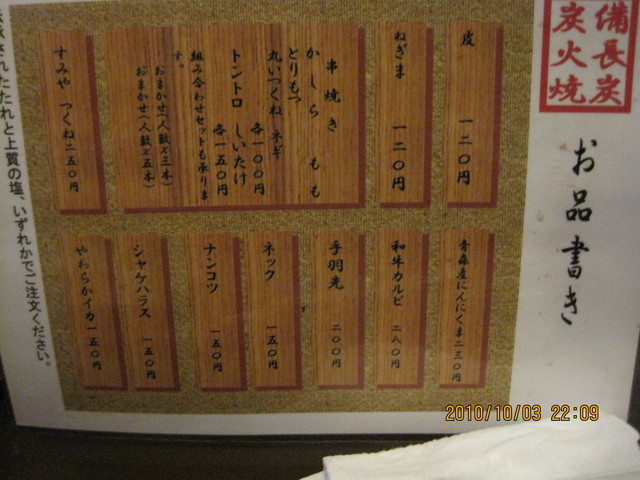 備長炭
炭火焼
お品書き
皮 一二〇円
ねぎま 一二〇円
串焼き
かしら もも
とりもつ
丸いつくね ネギ
各一〇〇円
トントロ しいたけ
各一五〇円
組み合わせセットも承りま
す。
おまかせ(人数×三本)
おまかせ(人数×五本)
すみや つくね二五〇円
青森産にんにくま二三〇円
和牛カルビ 二八〇円
手羽先 二〇〇円
ネック 一五〇円
ナンコツ 一五〇円
シャケハラス 一五〇円
やわらかイカ一五〇円
されたたれと上質の塩、いずれかでご注文ください。
2010/10/03 22:09